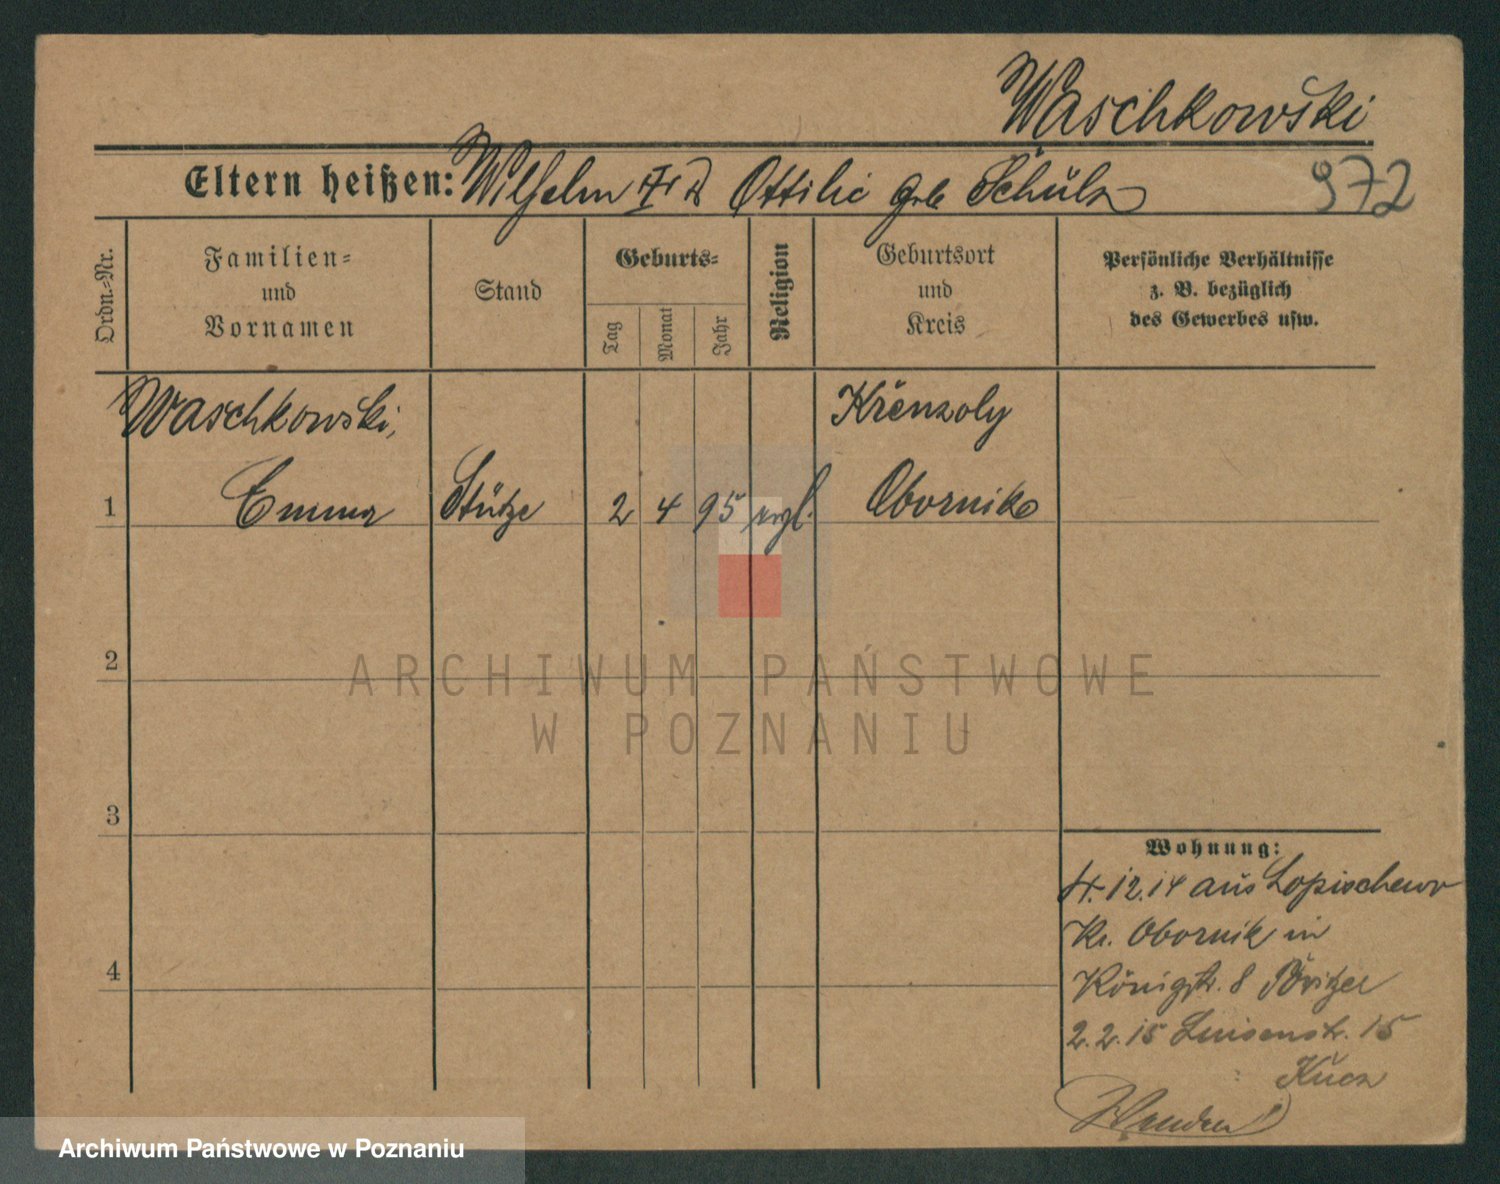 Waschkowski
Eltern heißen: Wilhelm Ottilie geb Schulz
972
Ordn.-Nr.
Familien-
und
Vornamen
Stand
Geburts-
Tag
Monat
Jahr
Religion
Geburtsort
und
Kreis
Persönliche Verhältnisse
z. B. bezüglich
des Gewerbes usw.
Waschkowski,
Krenzoly
1 Emma Stütze 2 4 95 evgl. Obornik
2
3
4
ARCHIWUM PAŃSTWOWE
W POZNANIU
Wohnung:
4.12.14 aus Lopischewo
Kr. Obornik in
Königstr. 8
2.2.15 Luisenstr. 15
Wenden!
Archiwum Państwowe w Poznaniu